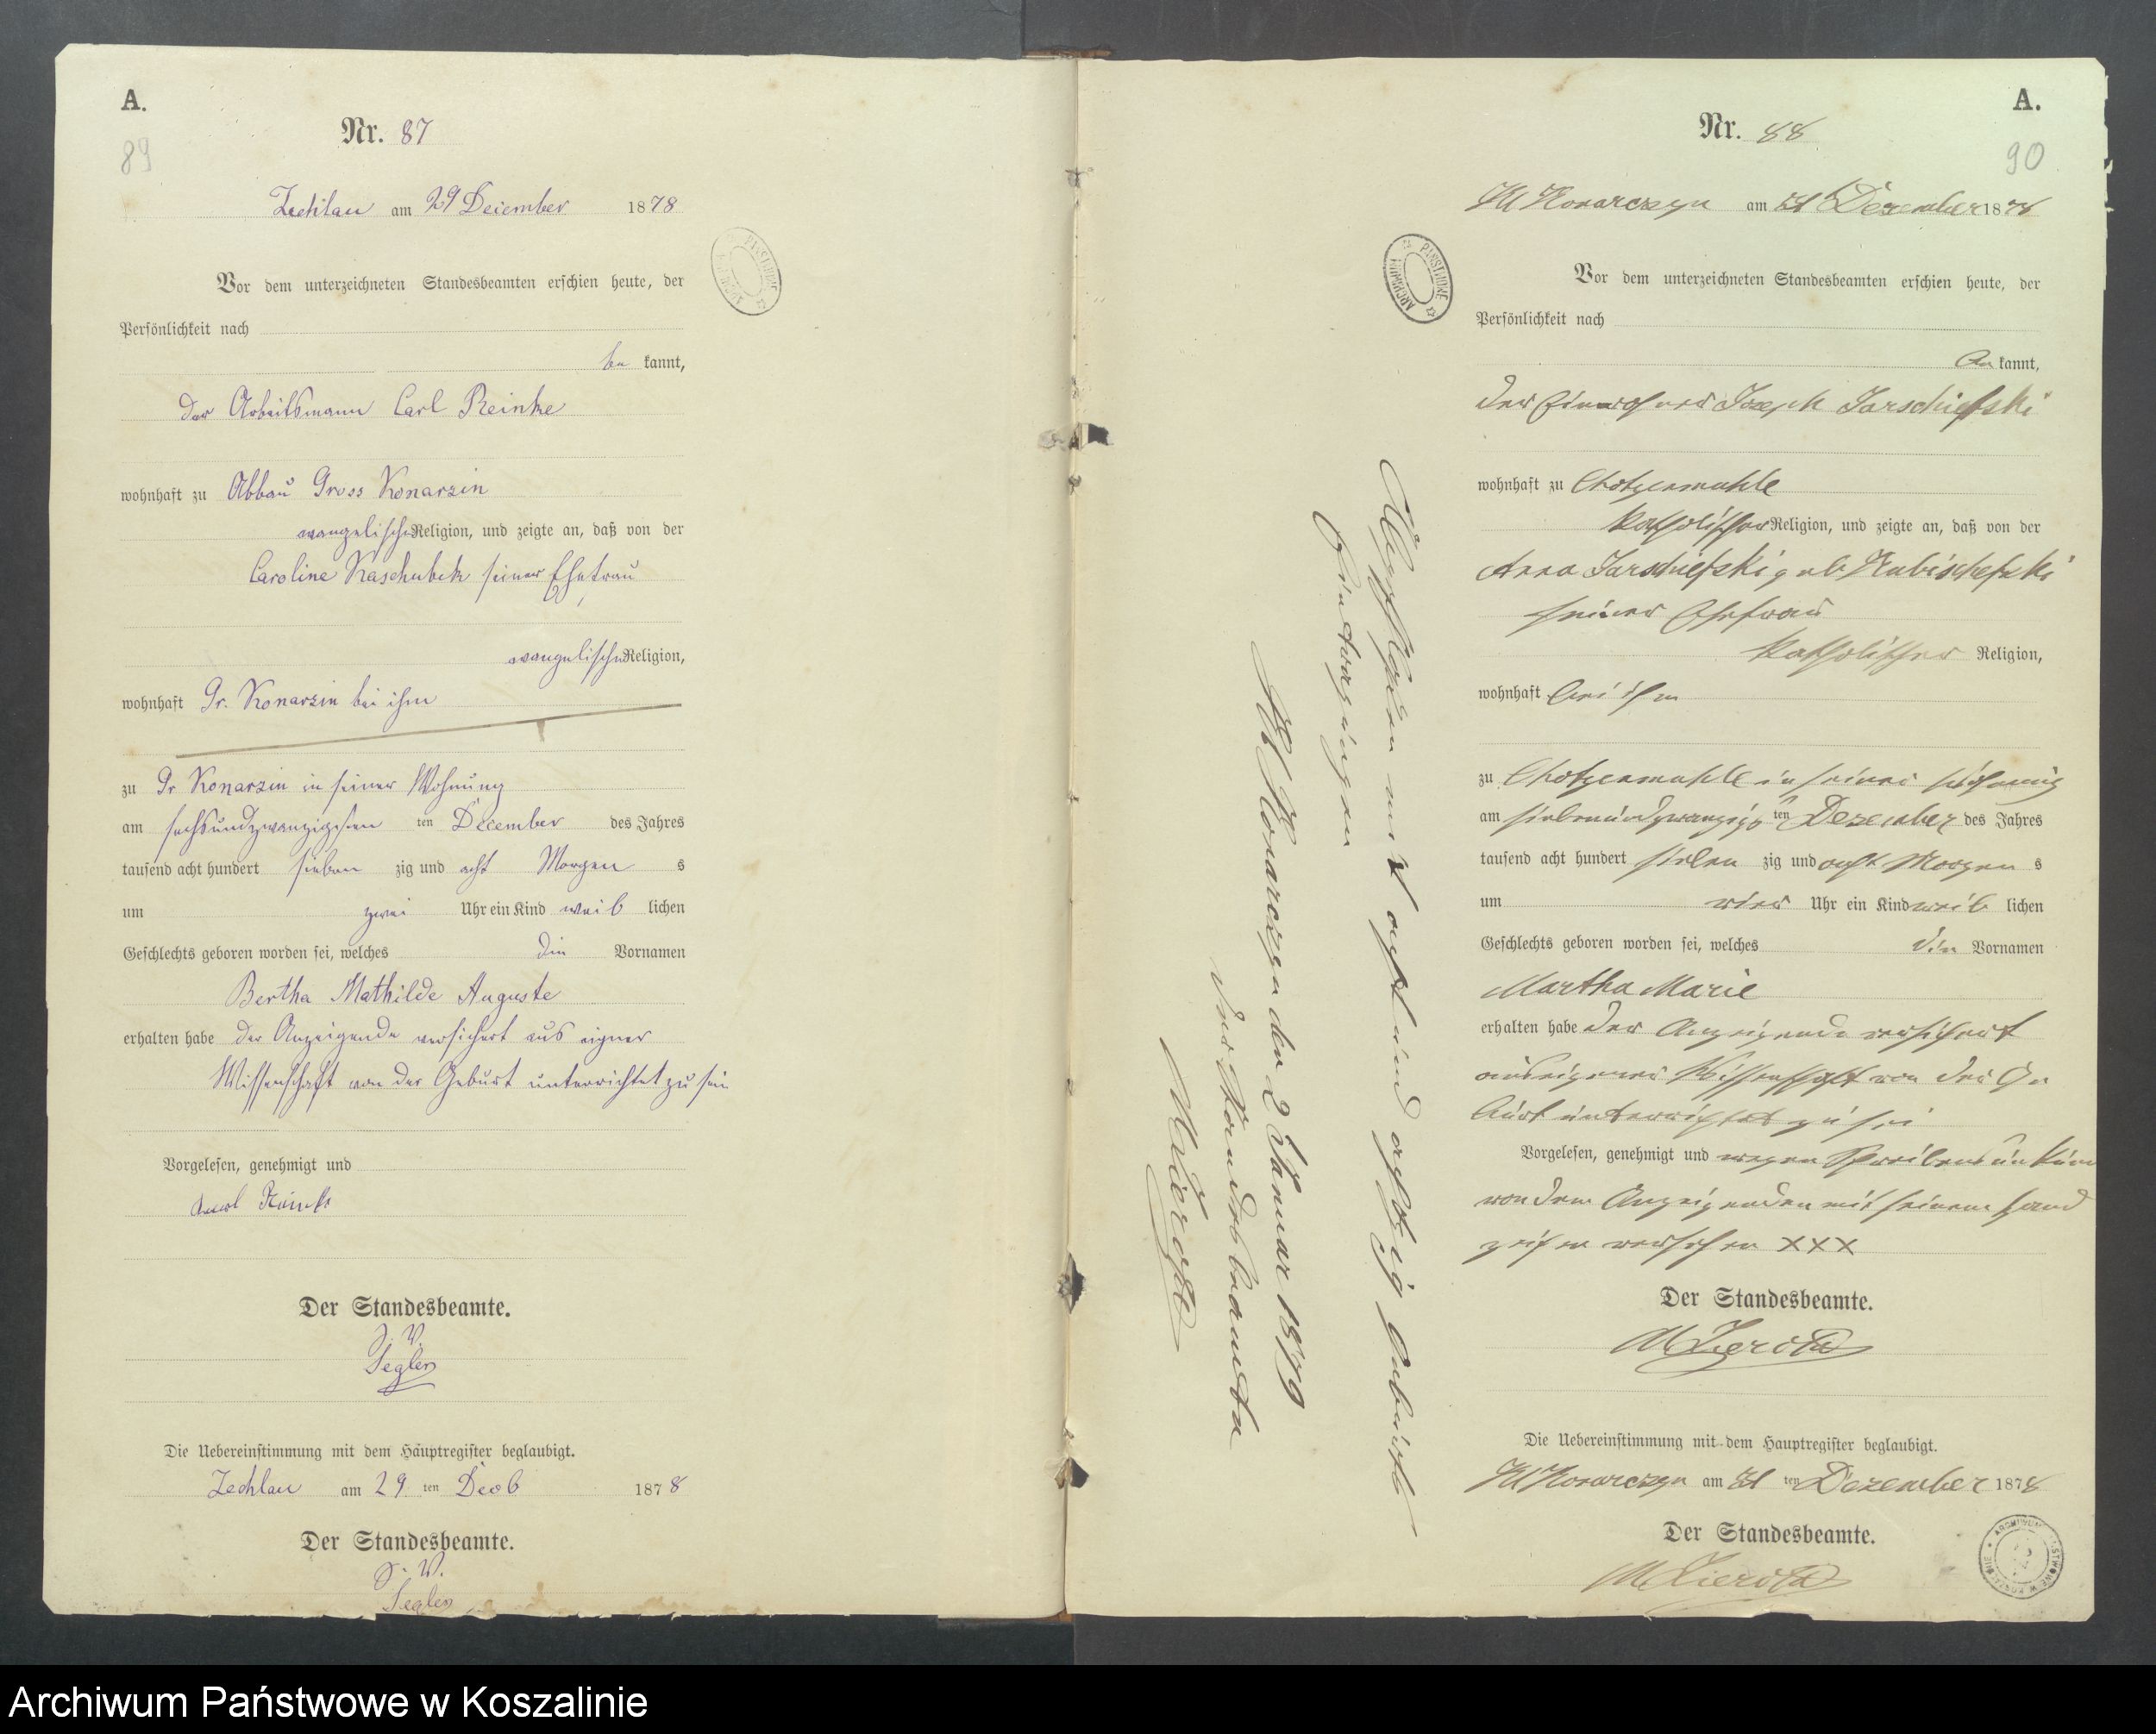 A.
89
Nr. 87
Zechlau am 29 December 1878
Vor dem unterzeichneten Standesbeamten erschien heute, der
Persönlichkeit nach
be kannt,
der Arbeitsmann Carl Reinke
wohnhaft zu Abbau Gross Konarzin
evangelischer Religion, und zeigte an, daß von der
Caroline Kaschubek seiner Ehefrau
evangelischer Religion,
wohnhaft Gr. Konarzin bei ihm
zu Gr Konarzin in seiner Wohnung
am sechsundzwanzigsten ten December des Jahres
tausend acht hundert sieben zig und acht Morgen s
um zwei Uhr ein Kind weib lichen
Geschlechts geboren worden sei, welches die Vornamen
Bertha Mathilde Auguste
erhalten habe der Anzeigende versichert aus eigner
Wissenschaft von der Geburt unterrichtet zu sein
Vorgelesen, genehmigt und
Der Standesbeamte.
J. V.
Segler
Die Uebereinstimmung mit dem Hauptregister beglaubigt.
Zechlau am 29 ten Decb 1878
Der Standesbeamte.
J. V.
Segler
A.
90
Nr. 88
Kl Konarczyn am 31 Dezember 1878
Vor dem unterzeichneten Standesbeamten erschien heute, der
Persönlichkeit nach
be kannt,
der Einwohner Joseph Jarschiefski
wohnhaft zu Chotzenmühle
katholischer Religion, und zeigte an, daß von der
Anna Jarschiefski geb Kubischefski
seiner Ehefrau
katholischer Religion,
wohnhaft bei ihm
zu Chotzenmühle in seiner Wohnung
am siebenundzwanzigs ten Dezember des Jahres
tausend acht hundert sieben zig und acht Morgen s
um vier Uhr ein Kind weib lichen
Geschlechts geboren worden sei, welches die Vornamen
Martha Marie
erhalten habe der Anzeigende versichert
aus eigener Wissenschaft von der Ge
burt unterrichtet zu sei
Vorgelesen, genehmigt und wegen Schreibens unkun
von dem Anzeigenden mit seinem Hand
zeichen versehen XXX
Der Standesbeamte.
Die Uebereinstimmung mit dem Hauptregister beglaubigt.
Kl Konarczyn am 31 ten Dezember 1878
Der Standesbeamte.
Abgeschlossen mit acht und achtzig Geburts
Eintragungen
Kl Konarczyn den 2 Januar 1879
Der Standesbeamte
Archiwum Państwowe w Koszalinie